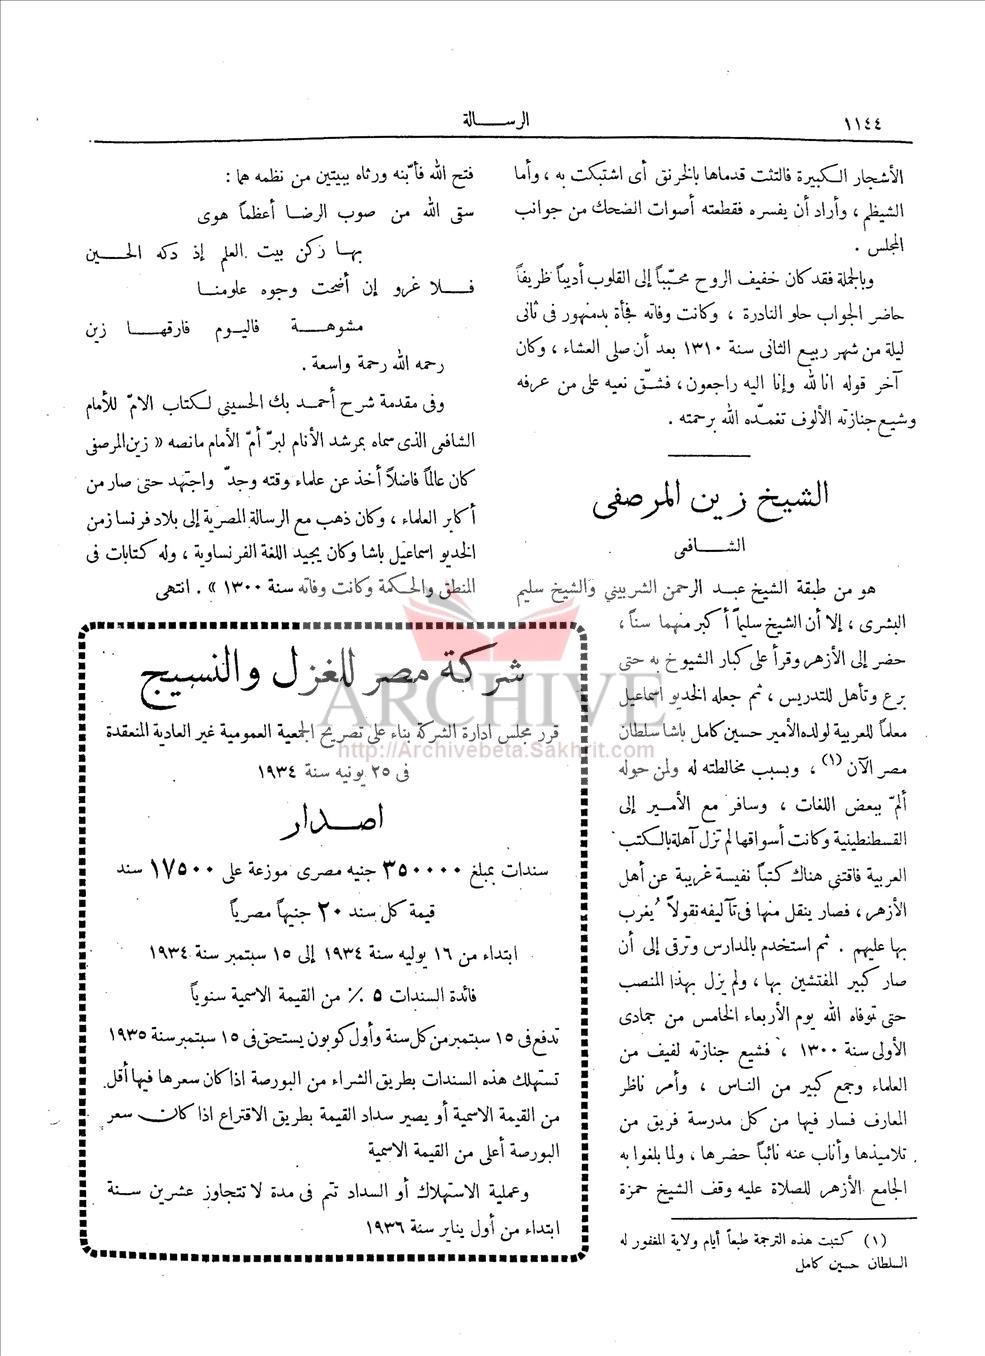 ١١٤٤
الرسالة
الأشجار الكبيرة فالتثت قدماها بالخرنق أى اشتبكت به ، وأما
الشيظم ، وأراد أن يفسره فقطعته أصوات الضحك من جوانب
المجلس .
وبالجملة فقد كان خفيف الروح محبّباً إلى القلوب أديباً ظريفاً
حاضر الجواب حلو النادرة ، وكانت وفاته فجأة بدمنهور فى ثانى
ليلة من شهر ربيع الثانى سنة ١٣١٠ بعد أن صلى العشاء ، وكان
آخر قوله انا لله وإنا اليه راجعون ، فشقّ نعيه على من عرفه
وشيع جنازته الألوف تغمّده الله برحمته .
الشيخ زين المرصفى
الشافعى
هو من طبقة الشيخ عبد الرحمن الشربيني والشيخ سليم
البشرى ، إلا أن الشيخ سليماً أكبر منهما سناً ،
حضر إلى الأزهر وقرأ على كبار الشيوخ به حتى
برع وتأهل للتدريس ، ثم جعله الخديو اسماعيل
معلماً للعربية لولده الأمير حسين كامل باشا سلطان
مصر الآن (١) ، وبسبب مخالطته له ولمن حوله
ألمّ ببعض اللغات ، وسافر مع الأمير إلى
القسطنطينية وكانت أسواقها لم تزل آهلة بالكتب
العربية فاقتنى هناك كتباً نفيسة غريبة عن أهل
الأزهر ، فصار ينقل منها فى تآليفه نقولاً يُغرب
بها عليهم . ثم استخدم بالمدارس وترقى إلى أن
صار كبير المفتشين بها ، ولم يزل بهذا المنصب
حتى توفاه الله يوم الأربعاء الخامس من جمادى
الأولى سنة ١٣٠٠ ، فشيع جنازته لفيف من
العلماء وجمع كبير من الناس ، وأمر ناظر
المعارف فسار فيها من كل مدرسة فريق من
تلاميذها وأناب عنه نائباً حضرها ، ولما بلغوا به
الجامع الأزهر للصلاة عليه وقف الشيخ حمزة
(١) كتبت هذه الترجمة طبعاً أيام ولاية المغفور له
السلطان حسين كامل
فتح الله فأبّنه ورثاه ببيتين من نظمه هما :
سقى الله من صوب الرضا أعظماً هوى
بها ركن بيت العلم إذ دكه الحسين
فلا غرو إن أضحت وجوه علومنا
مشوهة فاليوم فارقها زين
رحمه الله رحمة واسعة .
وفى مقدمة شرح أحمد بك الحسينى لكتاب الامّ للأمام
الشافعى الذى سماه بمرشد الأنام لبرّ أمّ الأمام مانصه « زين المرصفى
كان عالماً فاضلاً أخذ عن علماء وقته وجدّ واجتهد حتى صار من
أكابر العلماء ، وكان ذهب مع الرسالة المصرية إلى بلاد فرنسا زمن
الخديو اسماعيل باشا وكان يجيد اللغة الفرنساوية ، وله كتابات فى
المنطق والحكمة وكانت وفاته سنة ١٣٠٠ » . انتهى
شركة مصر للغزل والنسيج
ARCHIVE
قرر مجلس ادارة الشركة بناء على تصريح الجمعية العمومية غير العادية المنعقدة
http://Archivebeta.Sakhrit.com
فى ٢٥ يونيه سنة ١٩٣٤
اصدار
سندات بمبلغ ٣٥٠٠٠٠ جنيه مصرى موزعة على ١٧٥٠٠ سند
قيمة كل سند ٢٠ جنيهاً مصرياً
ابتداء من ١٦ يوليه سنة ١٩٣٤ إلى ١٥ سبتمبر سنة ١٩٣٤
فائدة السندات ٥ ٪ من القيمة الاسمية سنوياً
تدفع فى ١٥ سبتمبر من كل سنة وأول كوبون يستحق فى ١٥ سبتمبر سنة ١٩٣٥
تستهلك هذه السندات بطريق الشراء من البورصة اذا كان سعرها فيها أقل
من القيمة الاسمية أو يصير سداد القيمة بطريق الاقتراع اذا كان سعر
البورصة أعلى من القيمة الاسمية
وعملية الاستهلاك أو السداد تتم فى مدة لا تتجاوز عشرين سنة
ابتداء من أول يناير سنة ١٩٣٦